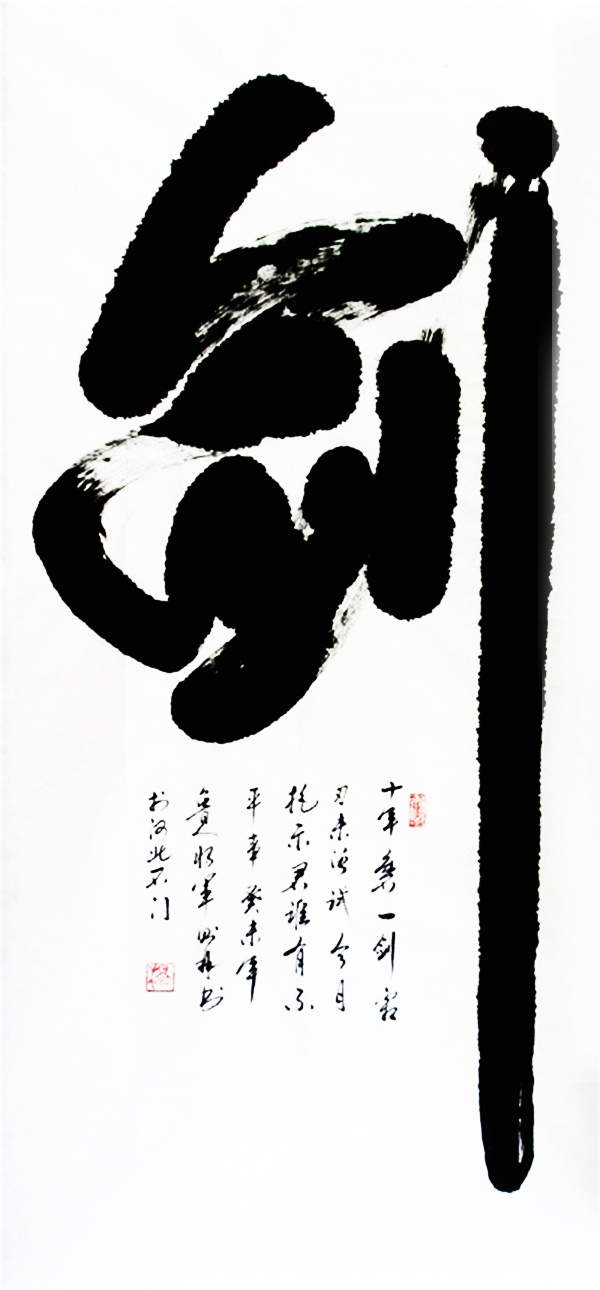 剑
十年磨一剑霜
刃未曾试今日
把示君谁有不
平事癸未年
将军书
于河北石门